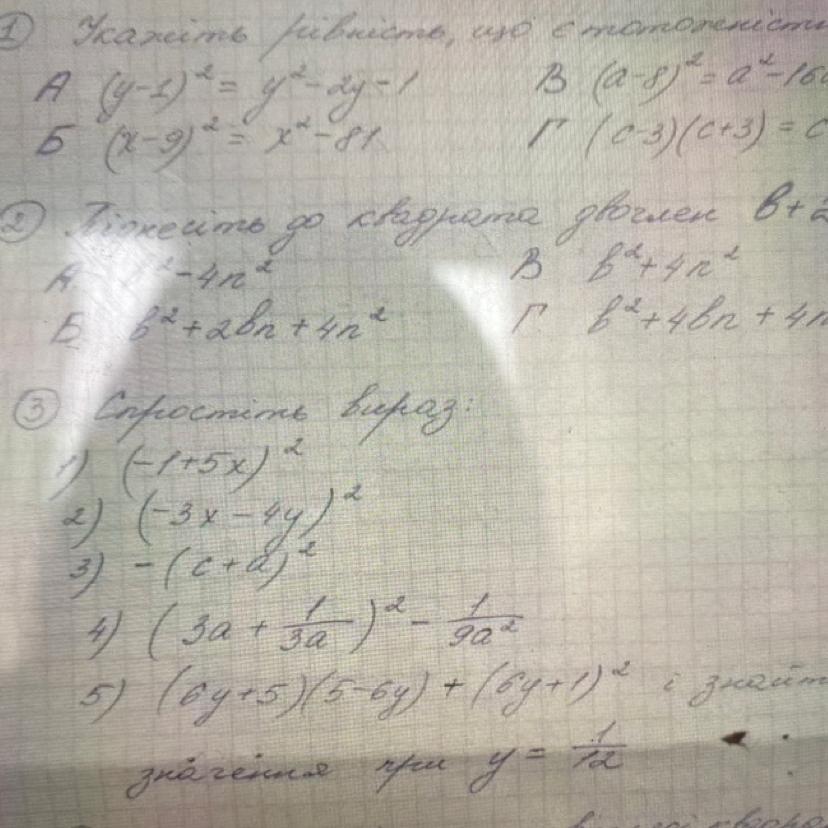 ① Укажіть рівність, що є тотожністю
А (y-1)² = y²-2y-1 В (a-8)² = a²-16a
Б (x-9)² = x²-81 Г (c-3)(c+3) = c
② Піднесіть до квадрата двочлен b+2
А b²-4n² В b²+4n²
Б b²+2bn+4n² Г b²+4bn+4n
③ Спростіть вираз:
1) (-1+5x)²
2) (-3x-4y)²
3) -(c+a)²
4) (3a + 1/3a)² - 1/9a²
5) (6y+5)(5-6y)+(6y+1)² і знайт
значення при y = 1/12